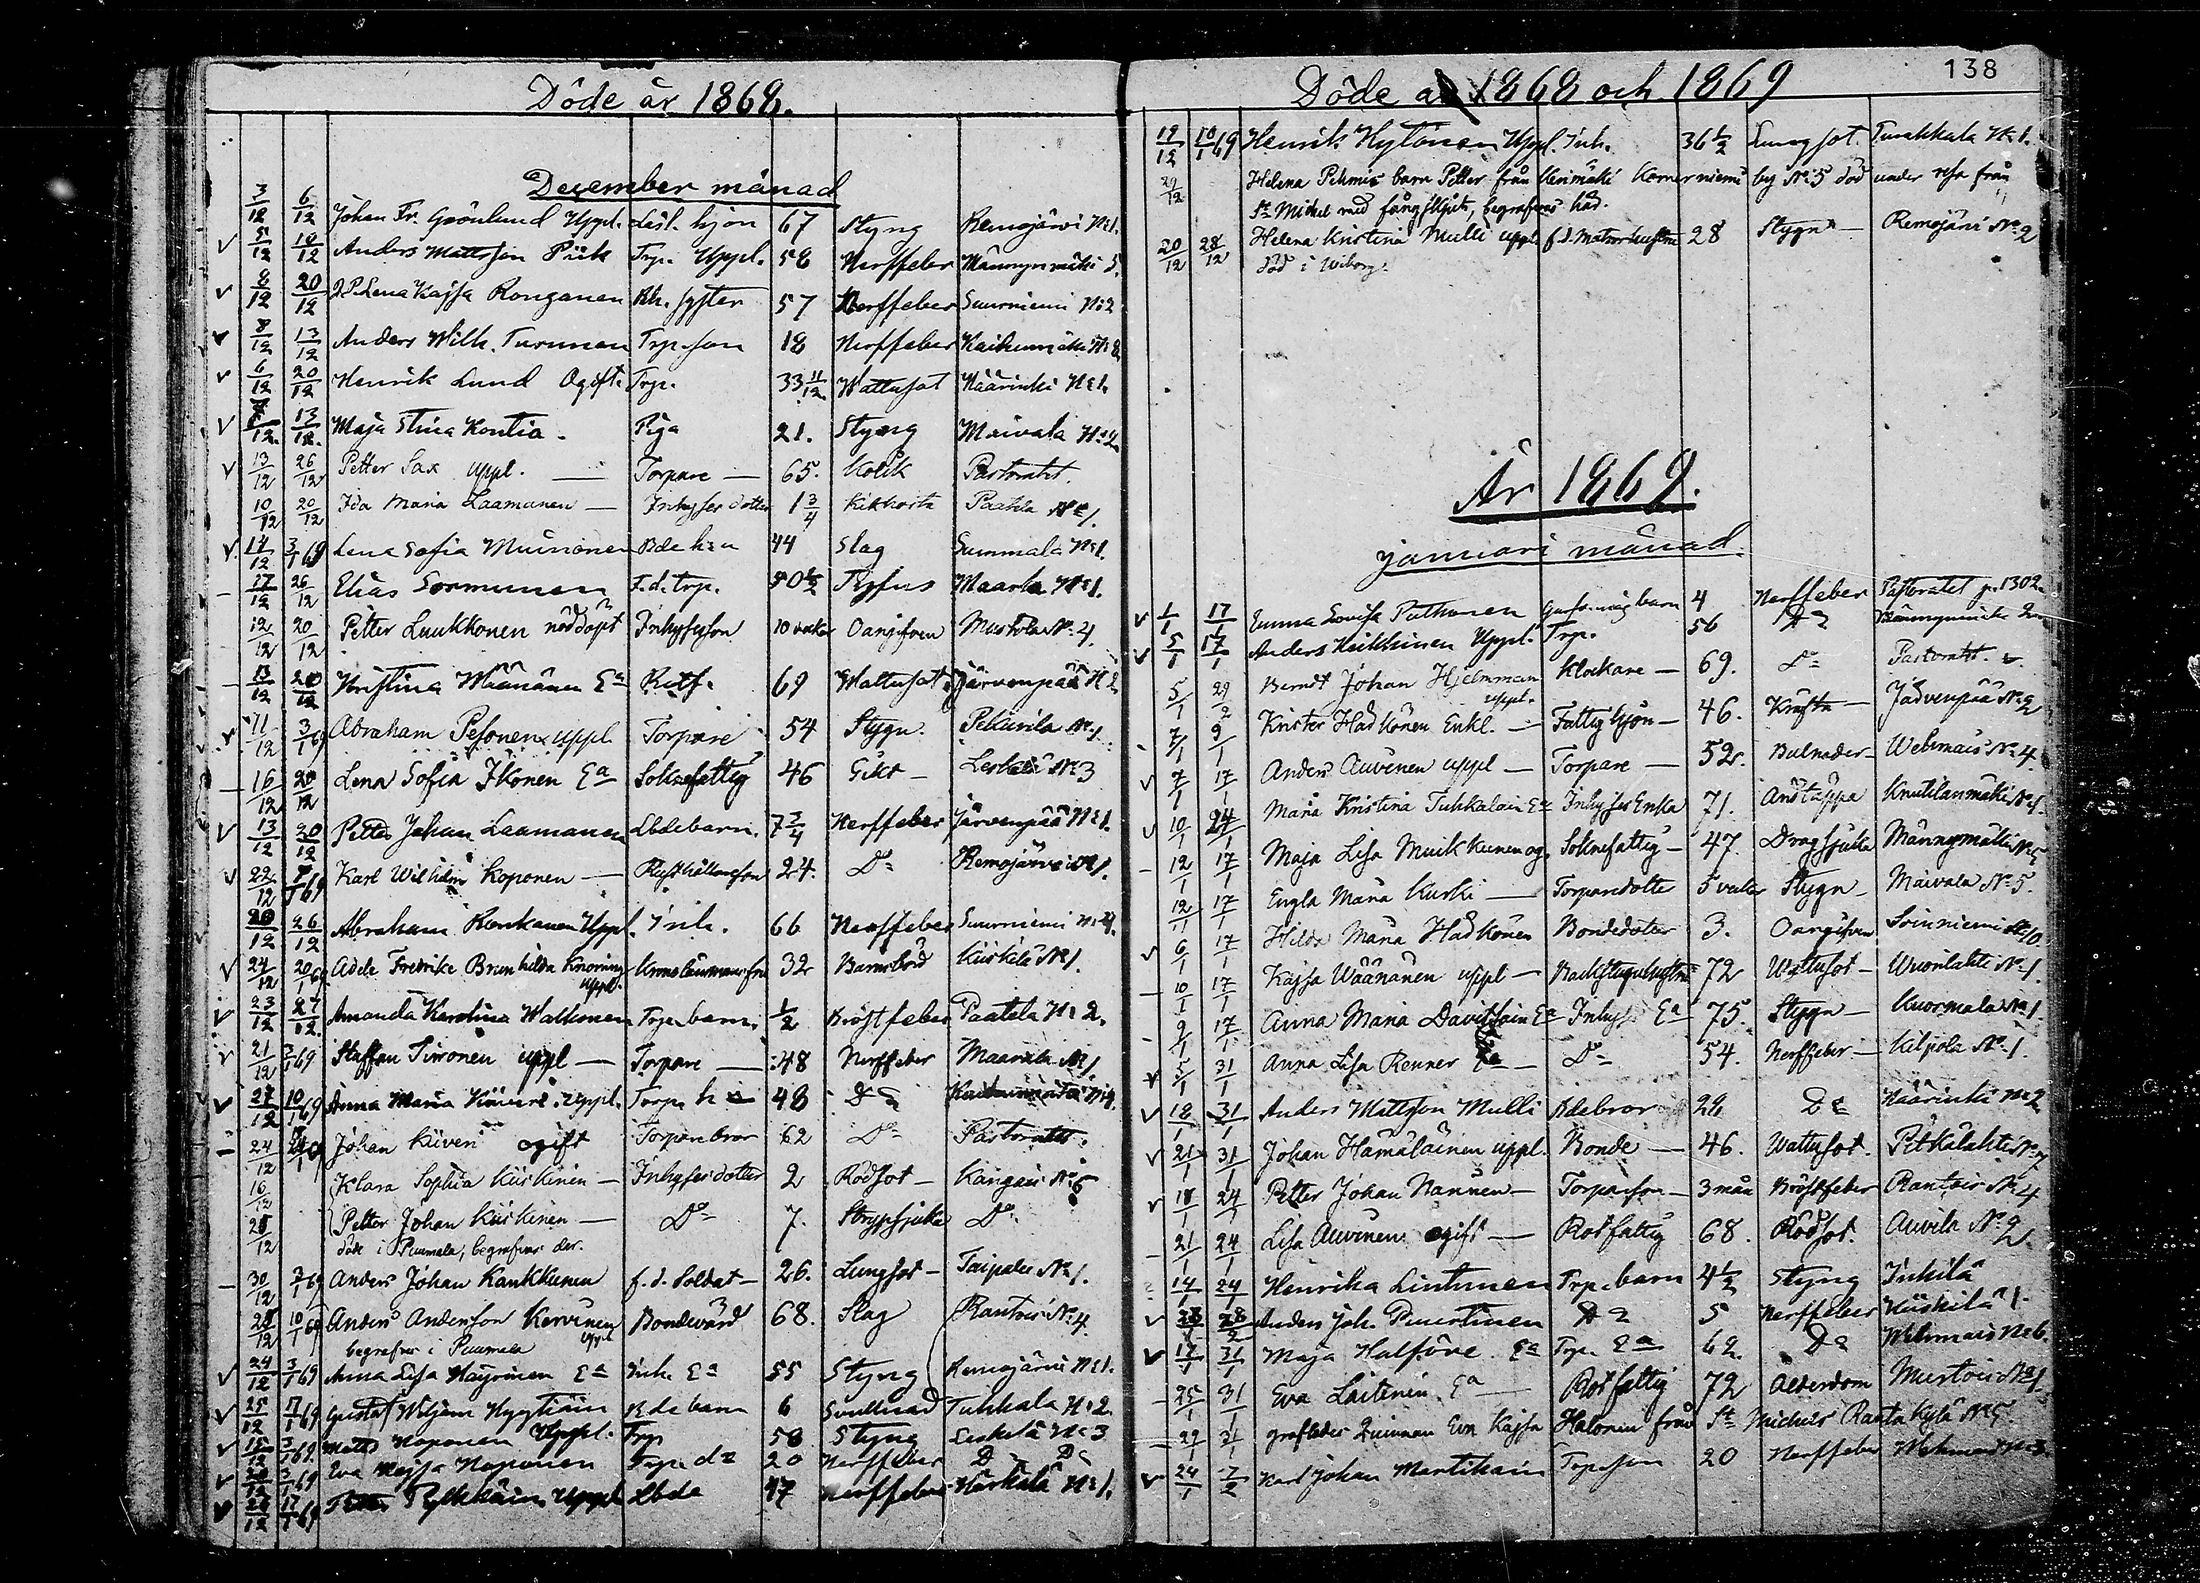 Döde år 1868.
December månad
3/12 6/12 Johan Fr. Grönlund Uppl. hjon 67 Styng Remojärvi N:1.
5/12 10/12 Anders Mattsson Piik Trp. Uppl. 58 Nerffeber Männynmäki 5.
8/12 20/12 Lena Kajsa Ronganen syster 57 Nerffeber Suurniemi N:2
8/12 13/12 Anders Wilh. Turunen Trp. son 18 Nerffeber
6/12 20/12 Henrik Lund Ogift. Trp. 33 11/12 Wattusot Häärinki N:1.
13/12 Maja Stina Kontia. Piga 21. Styng Maivala N:2
13/12 26/12 Petter Sax uppl. — Torpare — 65. Kolik Pastoratet.
10/12 20/12 Ida Maria Laamanen — Inhyses dotter 1 3/4 Kikhosta Paatela N:1.
14/12 3/1 69 Lena Sofia Muinonen Bde h:u 44 Slag Summala N:1.
17/12 26/12 Elias Sormunen F.d. trp. Tyfus Maarla N:1.
12/12 20/12 Petter Luukkonen nöddöpt Inhysesson 10 veckor Oangifven Mustola N:4.
13/12 20/12 Kristina Väänänen Ea Rotf. 69 Wattusot Järvenpää N:2
11/12 3/1 69 Abraham Pesonen uppl Torpare 54 Stygn Pekurila N:1
16/12 20/12 Lena Sofia Ikonen Ea Soknefattig 46 Gikt — Leskelä N:3
13/12 20/12 Petter Johan Laamanen Lbde barn. 7 3/4 Nerffeber Järvenpää N:1.
22/12 69 Karl Wilhelm Koponen — Rusthållareson 24. Do Remojärvi N:1.
20/12 26/12 Abraham Uppl. Inh. 66 Nerffeber Suurniemi N:4.
24/12 20/1 69 Adele Fredrike Brunhilda Knorring uppl. Kronolänsmans fru 32 Barnsbörd Kiiskilä N:1.
23/12 27/12 Amanda Karolina Walkonen Trp. barn. 1/2 Bröstfeber Paatela N:2.
21/12 3/1 69 Staffan Timonen uppl — Torpare — 48 Nerffeber Maarala N:1
27/12 10/1 69 Anna Maria Uppl. Torp. h 48 Do
24/12 Johan Kiiveri ogift Torpare bror 62 Do Pastoratet.
16/12 Klara Sophia Kiiskinen — Inhyses dotter 2 Rödsot — Kangais N:6
28/12 Petter Johan Kiiskinen — Do 7. Strypsjuka Do
döde i Puumala, begrafvas der.
30/12 3/1 69 Anders Johan Kankkunen f.d. Soldat — 26. Lungsot — Taipale N:1.
28/12 10/1 69 Anders Andersson Kervinen uppl Bondevärd 68. Slag Rantois N:4.
begrafvas i Puumala
24/12 3/1 69 Anna Lisa Häyrinen Ea Inh. Ea 55 Styng Remojärvi N:1.
25/12 17/1 69 Gustaf Wiljam Hyytiäin Bde barn 6 Svullnad Tuhkala N:2.
15/12 3/1 69. Matts Koponen Uppl. Trp 58 Styng Leskelä N:3
3/1 69 Eva Kajsa Koponen Trp. dr 20 Nerffeber Do Do
17/1 69 Uppl Lbde 47 Nerffeber Härkälä N:1.
Döde år 1868 och 1869
138
19/12 10/1 69 Henrik Hytönen Uppl. Inh. 36 1/2 Lungsot. Tuukkala N:1.
29/12 Helena Pehmis barn Petter från Kerimäki niemi by N:5 död under resa från
St Michel med fångskjuts, begrafves här.
20/12 28/12 Helena Kristina Mulli uppl f.d. 28 Stygn — Remojärvi N:2
död i Wiborg.
År 1869.
januari månad.
1/1 17/1 Emma Lovisa Puttonen barn 4 Nerffeber Pastoratet p. 1302
5/1 17/1 Anders Heikkinen Uppl. Trp. 56 Do Männynmäki 2
5/1 Berndt Johan Hjelmman uppl. Klockare — 69. Do Pastoratet.
7/1 9/1 Krister Hadkönen Enkl. — Fattighjon — 46. Kräfta — Järvenpää N:2
7/1 17/1 Anders Auvinen uppl — Torpare — 52. Bulnader — Wehmais N:4
10/1 24/1 Maria Kristina Tuhkalain Ea Inhyses Enka 71. Andtäppa Knutilanmäki N:1.
12/1 17/1 Maja Lisa Muikkunen og. Soknefattig — 47. Dragsjuka Männynmäki N:5
12/1 17/1 Engla Maria Kurki — Torparedotter 5 veckor Stygn — Maivala N:5.
6/1 17/1 Hilda Maria Hadkönen Bondedotter 3. Oangifven Soinniemi N:10.
10/1 17/1 Kajsa Wäänänen uppl — Backstuguhustru 72 Wattusot — Wuorilahti N:1.
9/1 17/1 Anna Maria Davitsain Ea Inhyses Ea 75. Stygn — Kuormala N:1
5/1 31/1 Anna Lisa Renner Ea — Do 54. Nerffeber — Kilpola N:1.
18/1 31/1 Anders Mattsson Mulli Bdebror Do Häärinki N:2
21/1 31/1 Johan Hämäläinen uppl. Bonde — 46. Wattusot. Pitkälahti N:7
24/1 Petter Johan Nannen — Torpareson — 3 mån Bröstfeber Rantois N:4
21/1 24/1 Lisa Auvinen ogift — Rotfattig 68. Rödsot. Auvila N:2
14/1 24/1 Henrika Lintunen Trp. barn 4 1/2 Styng Inkilä
Anders Joh. Puurtinen Do 5 Nerffeber Kiiskilä 1.
17/1 31/1 Maja Halfvore Ea Trp. Ea 62. Do Wehmais N:6.
25/1 31/1 Eva Laitinen Ea — Rotfattig 72 Ålderdom Murtois N:1
29/1 31/1 qvinnan Eva Kajsa Halonen från St Michels Rantakylä N:5
24/1 7/2 Karl Johan Martikain Trp. son 20 Nerffeber